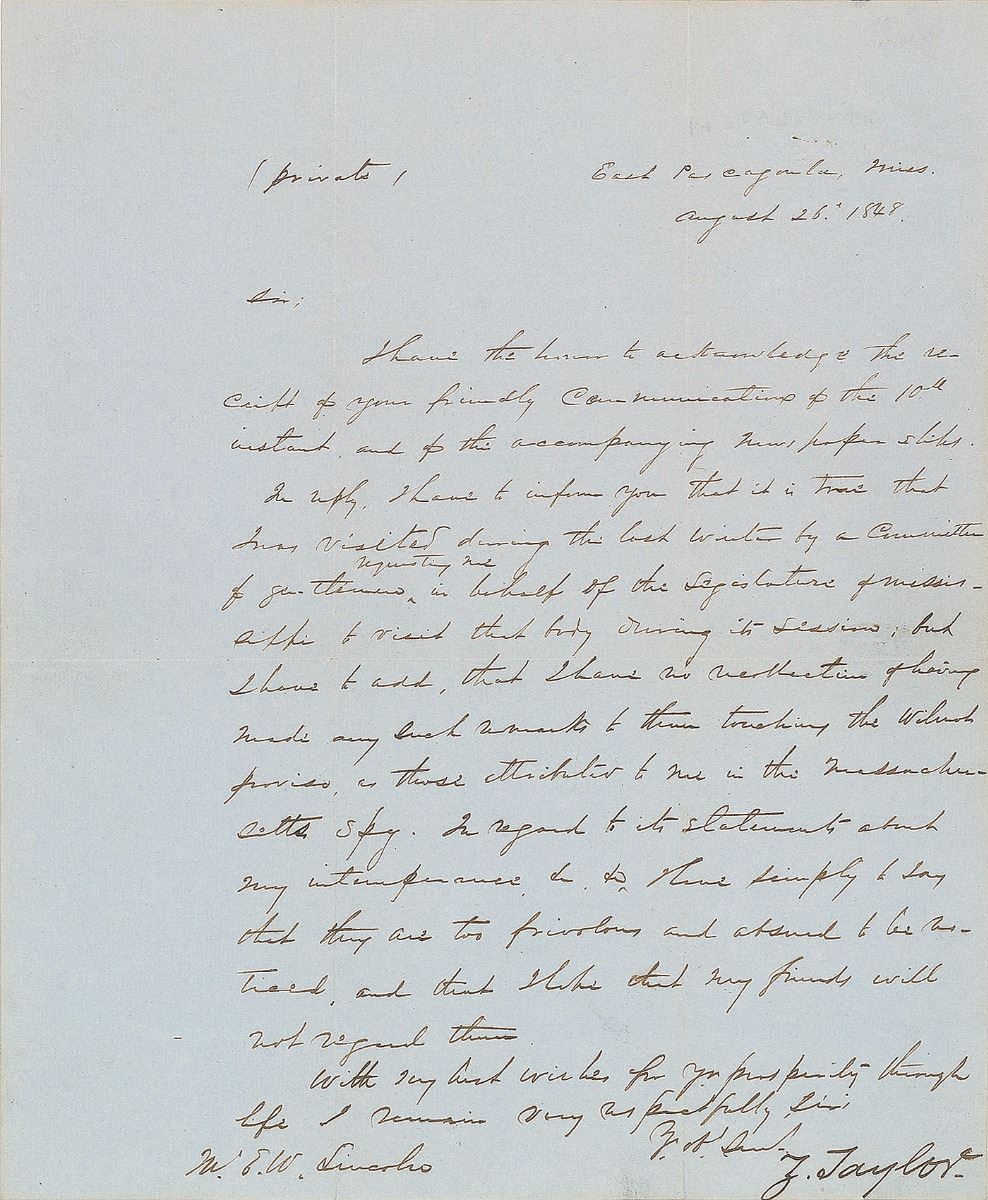 (private)
East Pascagoula, Miss.
August 26.' 1848.
Sir;
I have the honor to acknowledge the re-
ceipt of your friendly Communication of the 10th
instant, and of the accompanying news paper slips.
In reply, I have to inform you that it is true that
I was visited during the last winter by a Committee
requesting me
of gentlemen, ^ in behalf of the Legislature of missis-
sippi to visit that body during its session; but
I have to add, that I have no recollection of having
made any such remarks to them touching the Wilmot
proviso, as those attributed to me in the Massachu-
setts Spy. In regard to its statements about
my intemperance, &c. &c, I have simply to say
that they are too frivolous and absurd to be no-
ticed, and that I hope that my friends will
not regard them.
With my best wishes for yr prosperity through
life I remain very respectfully, Sir,
Yr. Obt. Servt.
Z. Taylor.
Mr. E. W. Lincoln